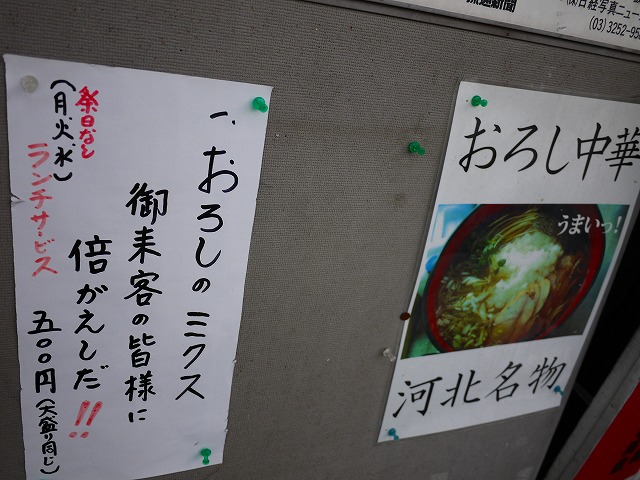 一、おろしのミクス
御来客の皆様に
倍がえしだ!!
五〇〇円(大盛り同じ)
祭日なし
(月火水)
ランチサービス
おろし中華
うまいっ!
河北名物
(03)3252-95